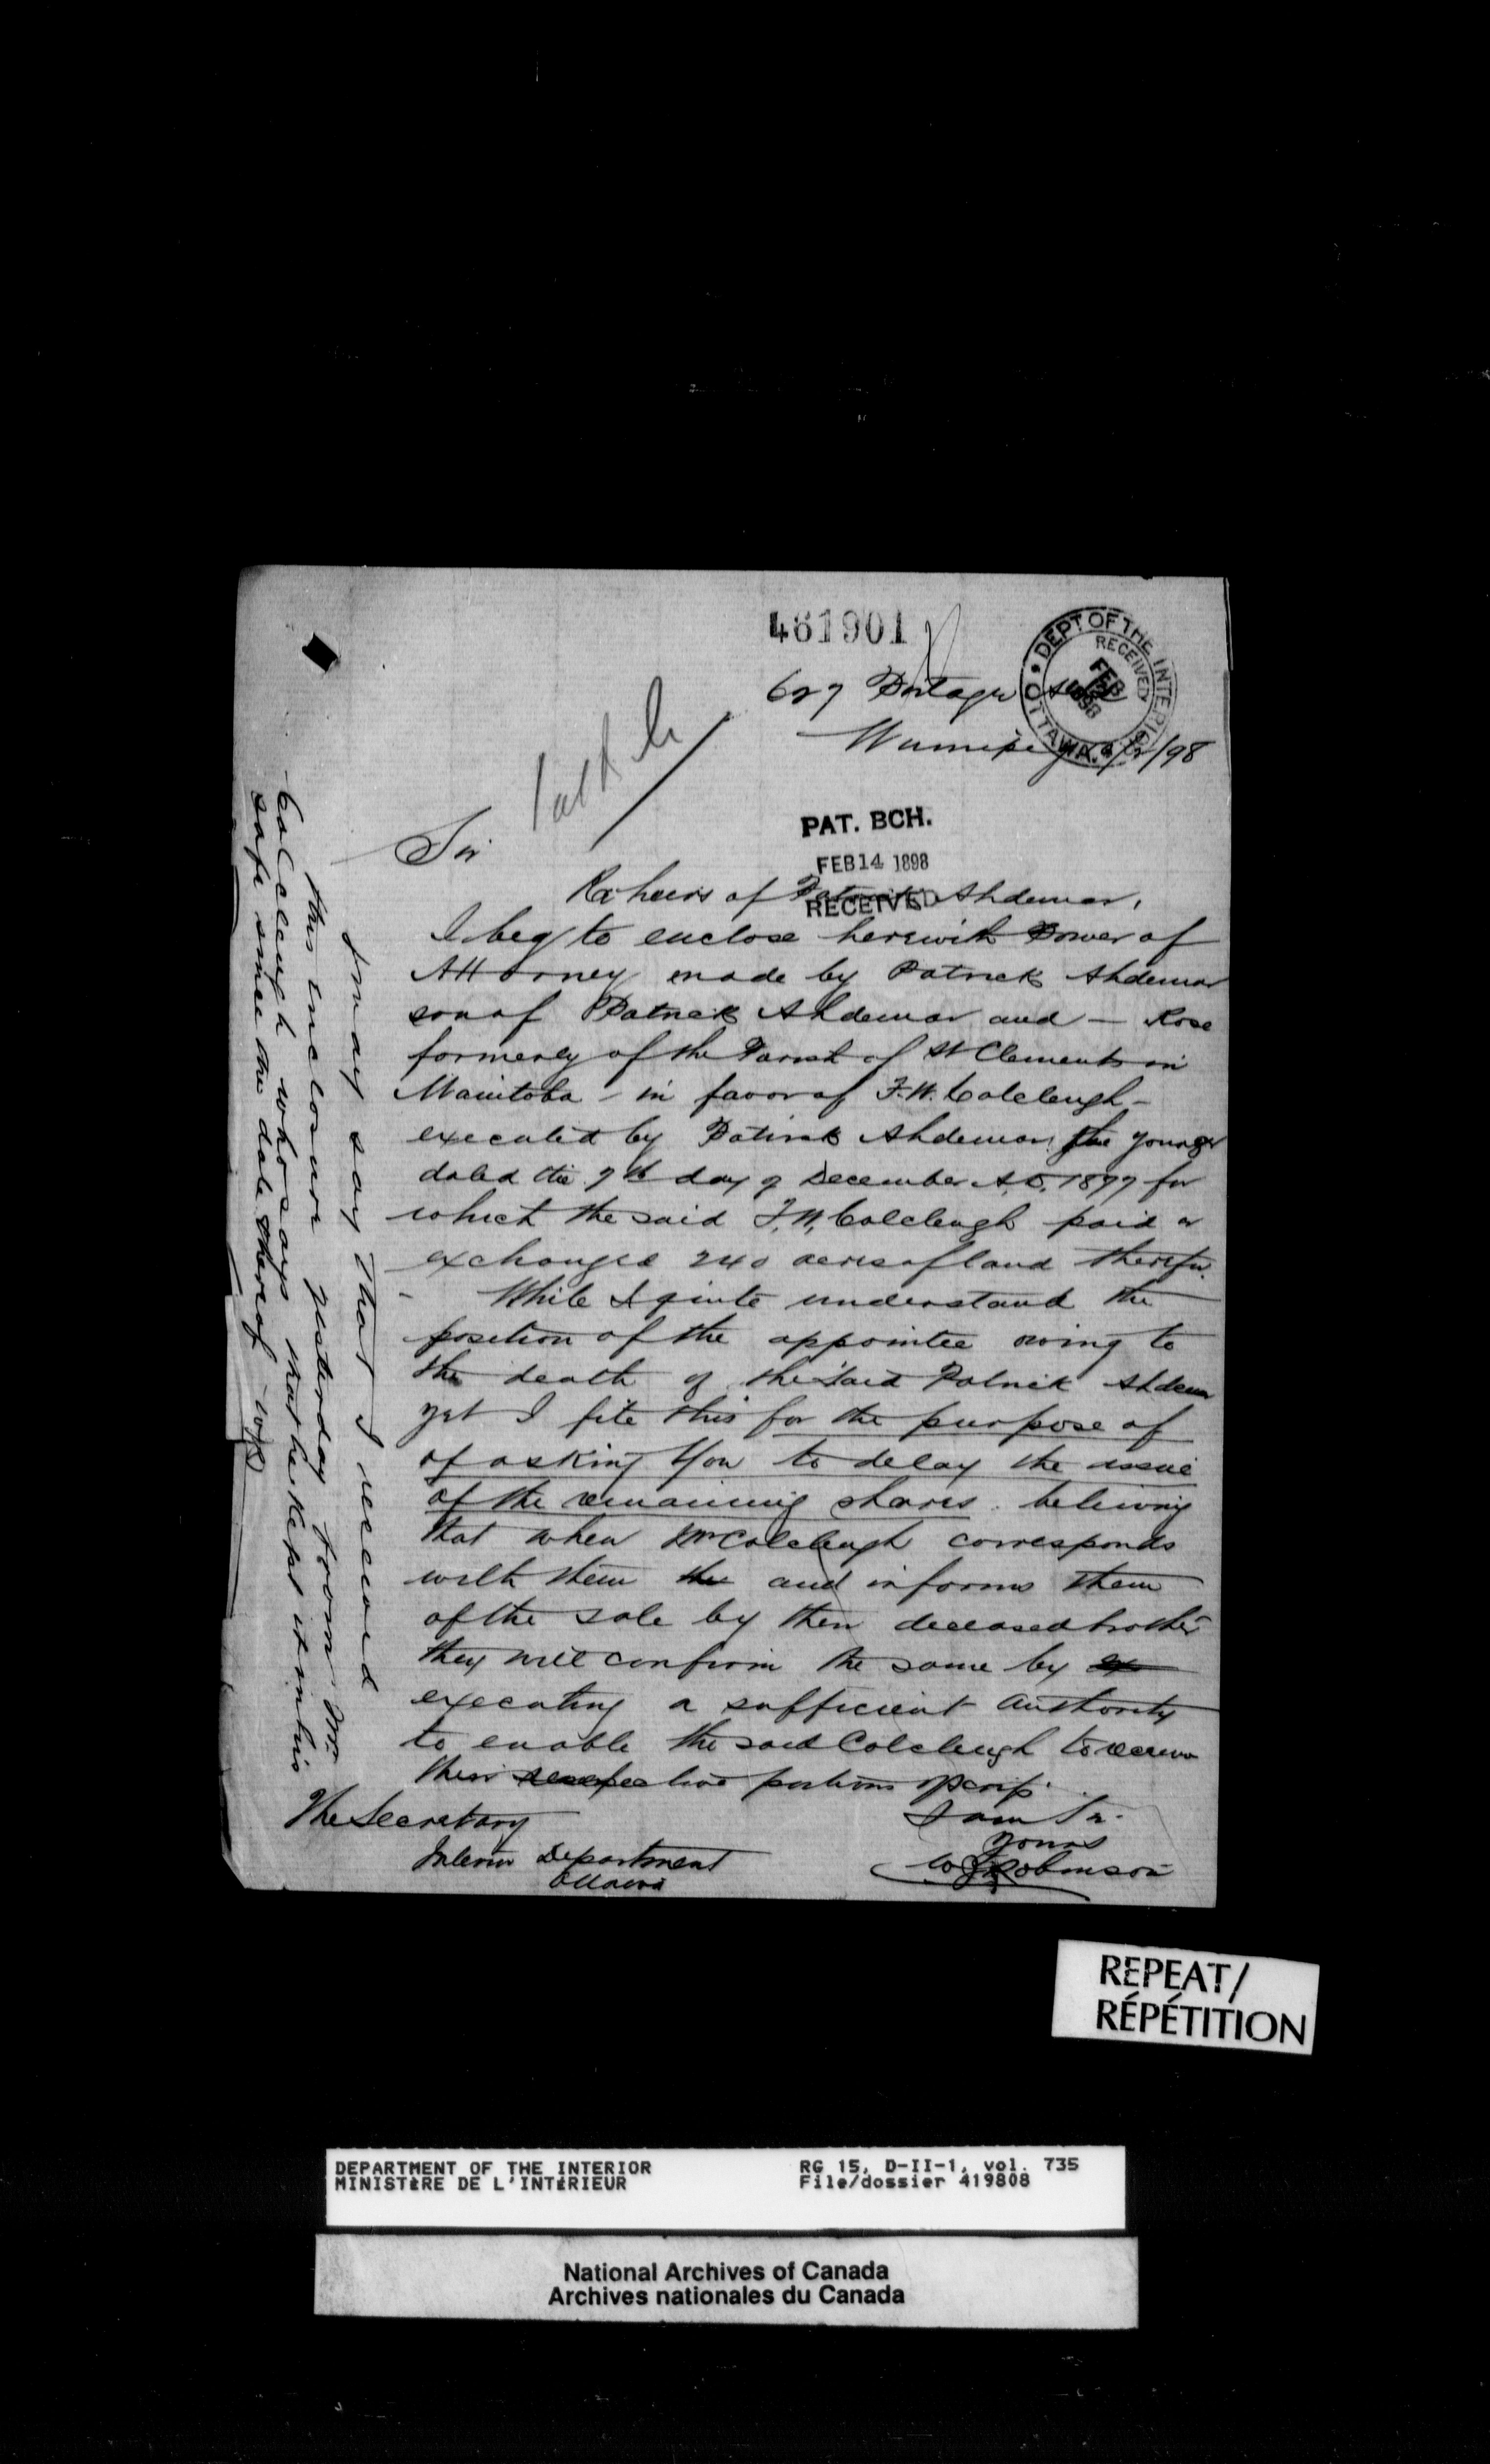 461901
627 Portage
DEPT OF THE INTERIOR
OTTAWA
RECEIVED
FEB
1898
Winnipeg /2/98
Sir
PAT. BCH.
FEB 14 1898
RECEIVED
Re heirs of Patrick Ahdemar,
I beg to enclose herewith Power of
Attorney made by Patrick Ahdemar
son of Patrick Ahdemar and — Rose
formerly of the Parish of St Clements in
Manitoba - in favor of F.W. Colcleugh -
executed by Patrick Ahdemar the younger
dated the 7th day of December A.D. 1877 for
which the said F.W. Colcleugh paid or
exchanged 240 acres of land therefor.
While I quite understand the
position of the appointee owing to
the death of the said Patrick Ahdemar
yet I file this for the purpose of
of asking you to delay the issue
of the remaining shares. believing
that when Mr Colcleugh corresponds
with them the and informs them
of the sale by their deceased brother
they will confirm the same by ex
executing a sufficient authority
to enable the said Colcleugh to receive
their respective portions of scrip.
I am Sir.
Yours
W J Robinson
The Secretary
Interior Department
Ottawa
I may say that I received
this inclosure yesterday from Mr
Colcleugh who says that he kept it in his
safe since the date thereof
REPEAT/
RÉPÉTITION
DEPARTMENT OF THE INTERIOR
MINISTÈRE DE L'INTÉRIEUR
RG 15, D-II-1, vol. 735
File/dossier 419808
National Archives of Canada
Archives nationales du Canada